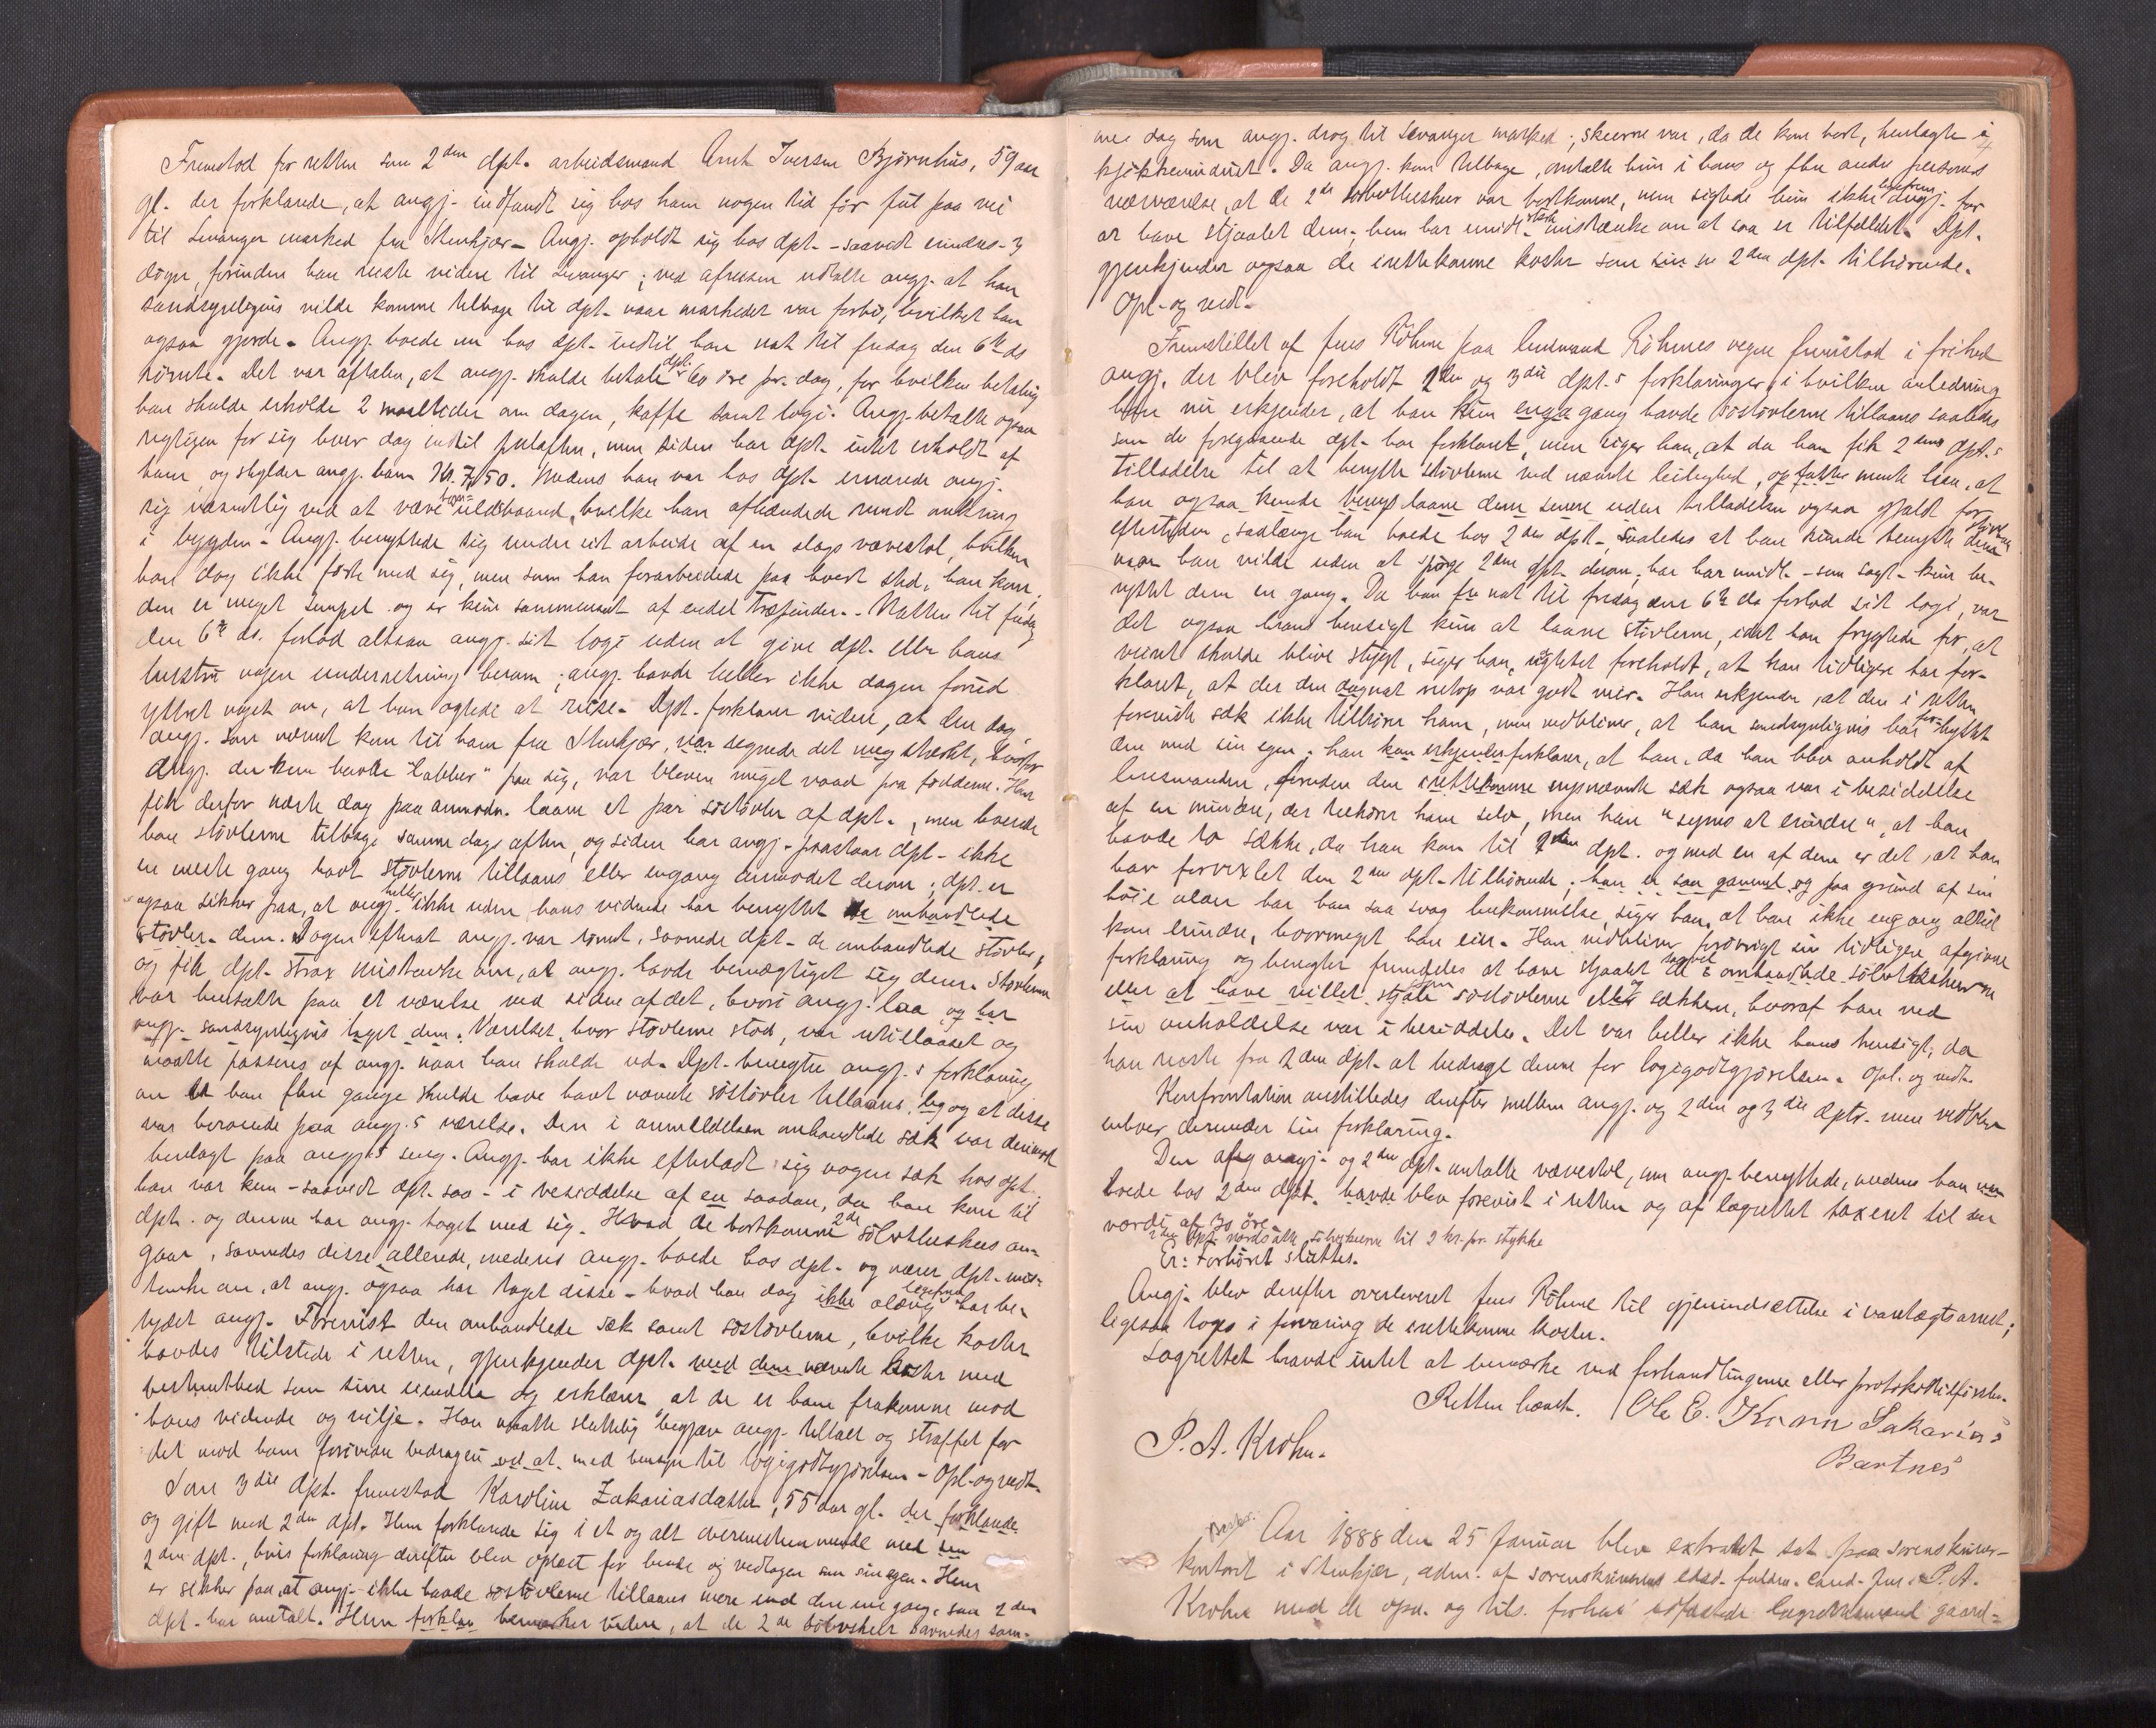 Fremstod for retten som 2den dpt. arbeidsmand Arnt Iversen Bjørnhus, 59 aar
gl. der forklarede, at angj. indfandt sig hos ham nogen tid før jul paa vei
til Levanger marked fra Stenkjær. Angj. opholdt sig hos dpt. - saavidt erindres - 3
døgn, forinden han reiste videre til Levanger; ved afreisen udtalte angj. at han
sandsynligvis vilde komme tilbage til dpt. naar markedet var forbi, hvilket han
ogsaa gjorde. Angj. boede nu hos dpt. indtil han nat til fredag den 6te ds
rømte. Det var aftalen, at angj. skulde betale dpt. 60 øre pr. dag, for hvilken betaling
han skulde erholde 2 maaltider om dagen, kaffe samt logi. Angj. betalte ogsaa
rigtigen for sig hver dag indtil juleaften, men siden har dpt. intet erholdt af
ham, og skylder angj. ham Kr. 7,50. Medens han var hos dpt. ernærede angj.
sig væsentlig ved at væve uldsbaand, hvilke han afhændede rundt omkring
i bygden. Angj. benyttede sig under sit arbeide af en slags vævestol, hvilken
han dog ikke førte med sig, men som han forarbeidede paa hvert sted, han kom;
den er meget simpel og er kun sammensat af endel træpinder. - Natten til fredag
den 6te ds. forlod altsaa angj. sit logi uden at give dpt. eller hans
hustru nogen underretning herom; angj. havde heller ikke dagen forud
yttret noget om, at han agtede at reise. Dpt. forklarer videre, at den dag
angj. som nævnt kom til ham fra Stenkjær, var regnede det meg stærkt, hvorfor
angj. der kun havde "labber" paa sig, var bleven meget vaad paa fødderne. Han
fik derfor næste dag paa anmodn. laane et par søstøvler af dpt., men leverede
han støvlerne tilbage samme dags aften, og siden har angj. - paastaar dpt. - ikke
en eneste gang havt støvlerne tillaans eller engang anmodet derom; dpt. er
ogsaa sikker paa, at angj. heller ikke uden hans vidende har benyttet de omhandlede
støvler. dem. Dagen efterat angj. var rømt, savnede dpt. de omhandlede støvler,
og fik dpt. strax mistanke om, at angj. havde bemægtiget sig dem. Støvlerne
var hensatte paa et værelse ved siden af det, hvori angj. laa og har
angj. sandsynligvis taget dem. Værelset, hvor støvlerne stod, var utillaaset og
maatte passeres af angj. naar han skulde ud. Dpt. benegter angj.s forklaring
om at han flere gange skulde have havt nævnte søstøvler tillaans, og og at disse
var beroende paa angj.s værelse. Den i anmeldelsen omhandlede sæk var derimod
henlagt paa angj.s seng. Angj. har ikke efterladt sig nogen sæk hos dpt.
han var kun - saavidt dpt. saa - i besiddelse af en saadan, da han kom til
dpt. og denne har angj. taget med sig. Hvad de bortkomne 2de sølvtheskeer an-
gaar, savnedes disse allerede, medens angj. boede hos dpt. og nærer dpt. mis-
tanke om, at angj. ogsaa har taget disse - hvad han dog ikke har be-
tydet angj. Forevist den omhandlede sæk samt søstøvlerne, hvilke koster
havdes tilstede i retten, gjenkjender dpt. med dem nævnte koster med
bestemthed som sine eiendele og erklærer at de er ham frakomne mod
hans vidende og vilje. Han maatte sluttelig begjære angj. tiltalt og straffet for
det mod ham forøvede bedrageri ved at med hensyn til logigodtgjørelsen. - Opl. og vedt.
Som 3die dpt. fremstod Karoline Zakariasdatter, 55 aar gl. der forklarede
og gift med 2den dpt. Hun forklarede sig i et og alt overensstemmende med sin
2den dpt., hvis forklaring derefter blev oplæst for hende og vedtagen som sin egen. Hun
er sikker paa, at angj. ikke havde søstøvlerne tillaans mere end den ene gang, som 2den
dpt. har omtalt. Hun forklar bemærker videre, at de 2de sølvskeer savnedes sam-
me dag som angj. drog til Levanger marked; skeerne var, da de kom bort, henlagte i
kjøkkenvinduet. Da angj. kom tilbage, omtalte hun i hans og flere andre personers
nærværelse, at de 2de sølvtheskeer var bortkomne, men sigtede hun ikke angj. for
at have stjaalet dem; hun har imidl. stærk mistanke om at saa er tilfældet. Dpt.
gjenkjender ogsaa de irettekomne koster som sin sin 2den dpt. tilhørende.
Opl. og vedt.
Fremstillet af Jens Røhme paa lensmand Røhmes vegne fremstod i frihed
angj. der blev foreholdt 2den og 3die dpt.s forklaringer, i hvilken anledning
han nu erkjender, at han kun en gang havde søstøvlerne tillaans saaledes
som de foregaaende dpt. har forklaret, men siger han, at da han fik 2dens dpt.s
tilladelse til at benytte støvlerne ved nævnte leilighed, opfatter mente han, at
han ogsaa kunde benyt laane dem senere uden tilladelsen ogsaa gjaldt for
eftertiden, saalænge han boede hos 2den dpt., saaledes at han kunde benytte støvlerne
naar han vilde uden at spørge 2den dpt. derom; han har imidl. - som sagt - kun be-
nyttet dem en gang. Da han fra nat til fredag den 6te ds forlod sit logi, var
det ogsaa hans hensigt kun at laane støvlerne, idet han frygtede for, at
veiret skulde blive stygt, siger han, uagtet foreholdt, at han tidligere har for-
klaret, at der den dagnat netop var godt veir. Han erkjender, at den i retten
foreviste sæk ikke tilhører ham, men vedbliver, at han sandsynligvis har forbyttet
den med sin egen; han kan erkjender forklarer, at han, da han blev anholdt af
lensmanden, foruden den irettekomne nysnævnte sæk ogsaa var i besiddelse
af en mindre, der tilhører ham selv, men han "synes at erindre", at han
havde to sække, da han kom til 2den dpt. og med en af dem er det, at han
har forvexlet den 2den dpt. tilhørende; han er saa gammel og paa grund af sin
høie alder har han saa svag hukommelse, siger han, at han ikke engang altid
kan erindre, hvormeget han eier. Han vedbliver forøvrigt sin tidligere afgivne
forklaring og benegter fremdeles at have stjaalet de omhandlede sølvtheskeerne
eller at have villet stjæle søstøvlerne eller sækken, hvoraf han ved
sin anholdelse var i besiddelse. Det var heller ikke hans hensigt, da
han reiste fra 2den dpt. at bedrage denne for logigodtgjørelsen. Opl. og vedt.
Konfrontation anstilledes derefter mellem angj. og 2den og 3die dptr. men vedblev
enhver derunder sin forklaring.
Den af angj. og 2den dpt. omtalte vævestol, som angj. benyttede, medens han
boede hos 2den dpt. havde blev forevist i retten og af lagrettet taxeret til en
værdi af 30 øre.
2den dpt. værdsatte sølvskeerne til 2 kr. pr. stykke
Er: Forhøret sluttes.
Angj. blev derefter overleveret Jens Røhme til gjenindsættelse i varetægtsarrest;
ligesaa toges i forvaring de irettekomne koster.
Lagrettet havde intet at bemærke ved forhandlingerne eller protokoltilførslen.
Retten hævet.
P. A. Krohn.
Ole E.
Sakarias
Bartnes
Aar 1888 den 25 Januar blev extraret sat paa sorenskriver-
kontoret i Stenkjær, adm. af sorenskriverens edsv. fuldm. cand. jur. P. A.
Krohn med de opn. og tils. forhen edfæstede lagrettesmænd gaard-